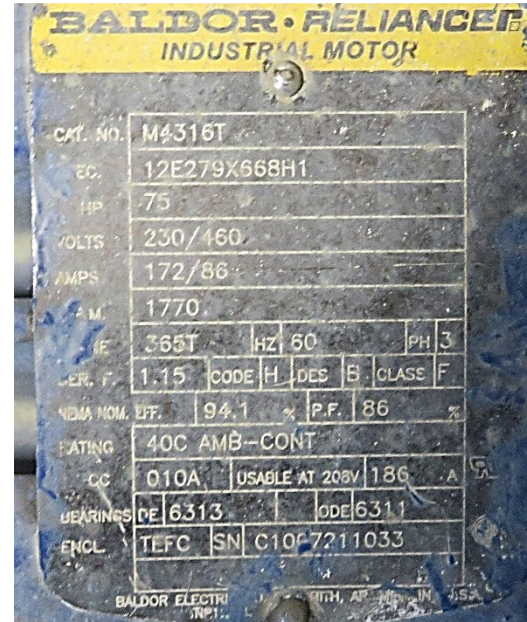 BALDOR • RELIANCER
INDUSTRIAL MOTOR
CAT. NO. M4316T
EC. 12E279X668H1
HP 75
VOLTS 230/460
AMPS 172/86
.M. 1770
365T HZ 60 PH 3
SER. F. 1.15 CODE H DES B CLASS F
NEMA NOM. EFF. 94.1 % P.F. 86 %
RATING 40C AMB-CONT
CC 010A USABLE AT 208V 186 A
BEARINGS DE 6313 ODE 6311
ENCL. TEFC SN
BALDOR ELECTRI